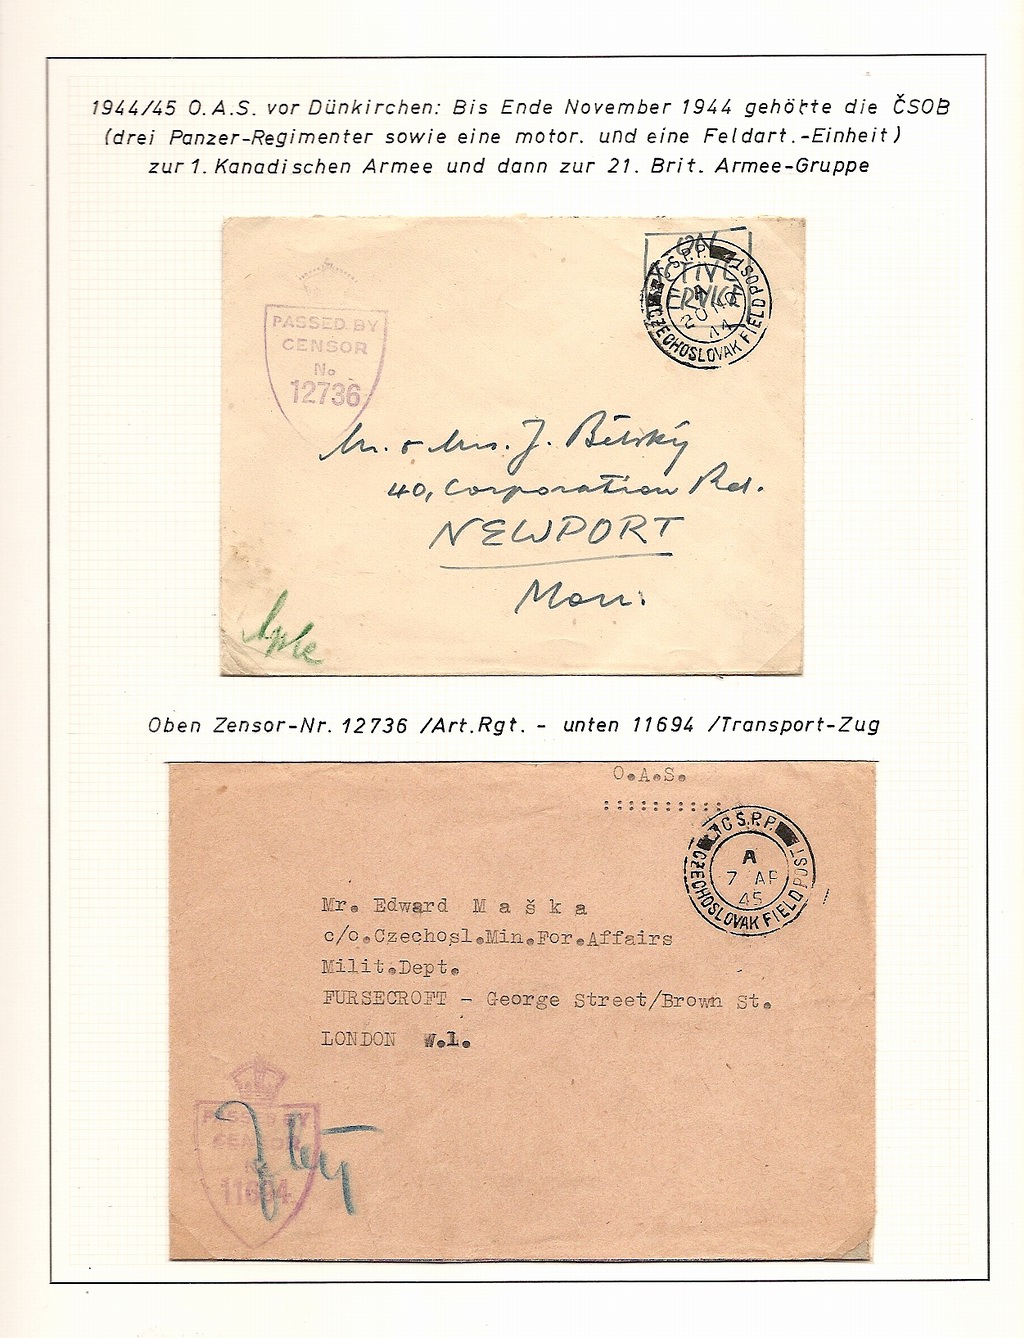 1944/45 O.A.S. vor Dünkirchen: Bis Ende November 1944 gehörte die ČSOB
(drei Panzer-Regimenter sowie eine motor. und eine Feldart.-Einheit)
zur 1. Kanadischen Armee und dann zur 21. Brit. Armee-Gruppe
ON
CTIVE
ERVICE
Č.S.P.P.
A
20 NO
44
CZECHOSLOVAK FIELD POST
PASSED BY
CENSOR
No
12736
Mr. & Mrs. J. Bělský
40, Corporation Rd.
NEWPORT
Mon.
Oben Zensor-Nr. 12736 /Art.Rgt. - unten 11694 /Transport-Zug
O.A.S.
::::::::::
Č.S.P.P.
A
7 AP
45
CZECHOSLOVAK FIELD POST
Mr. Edward M a š k a
c/o.Czechosl.Min.For.Affairs
Milit.Dept.
FURSECROFT - George Street/Brown St.
LONDON W.1.
PASSED BY
CENSOR
No
11694